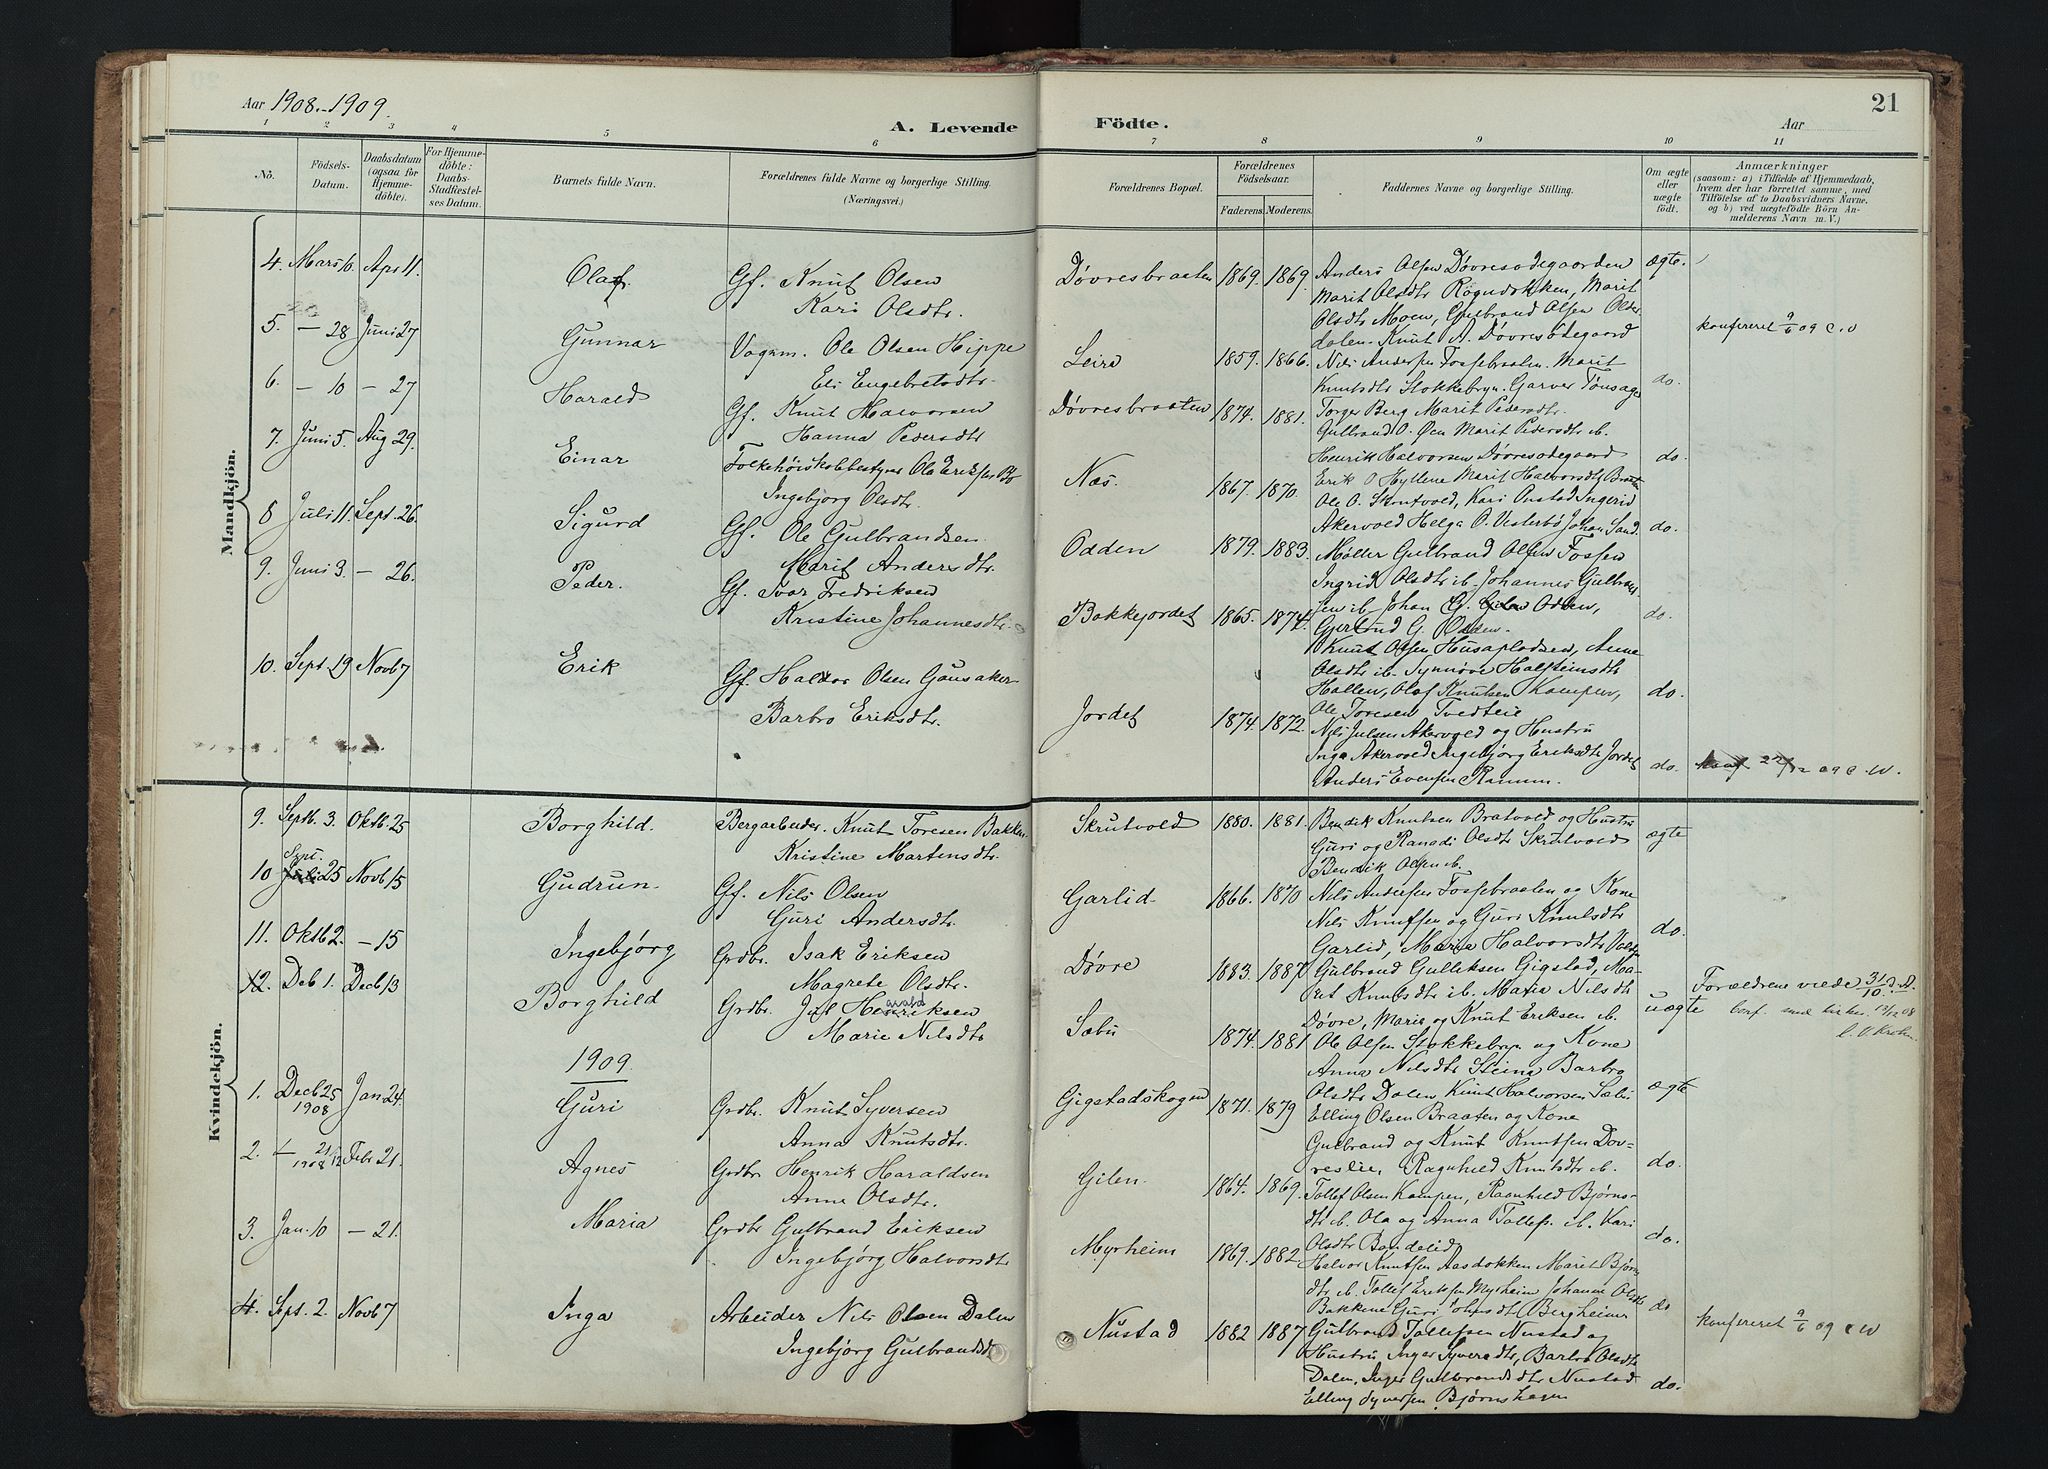 Aar 1908-1909.
A. Levende Födte.
Aar
21
1 2 3 4 5 6 7 8 9 10 11
No.
Födsels-Datum.
Daabsdatum (ogsaa for Hjemmedöbte).
For Hjemmedöbte: Daabs-Stadfæstelses Datum.
Barnets fulde Navn.
Forældrenes fulde Navne og borgerlige Stilling. (Næringsvei.)
Forældrenes Bopæl.
Forældrenes Födselsaar.
Faderens. Moderens.
Faddernes Navne og borgerlige Stilling.
Om ægte eller uægte födt.
Anmærkninger
(saasom: a) i Tilfælde af Hjemmedaab, hvem der har forrettet samme, med Tilföielse af to Daabsvidners Navne. og b) ved uægtefödte Börn Anmelderens Navn m. V.)
Mandkjön.
4. Mars 6. Apr 11. Olaf. Gf. Knut Olsen
Kari Olsdtr.
Døvresbraaten 1869. 1869. ægte.
Anders Olsen Døvresødegaarden
Marit Olsdtr Rognstokken, Marit
Olsdtr Moen, Gulbrand Olsen
dalen. Knut A. Døvresødegaard
5. — 28 Juni 27 Gunnar Vogm. Ole Olsen Hippe
Eli Engebretsdtr.
Leira 1859. 1866. do.
konfereret 9/6 09 C. W
Nils Andersen Fossebraaten. Marit
Knutsdtr Stokkebryn. Garver Tonsager
6. — 10 — 27 Harald Gf. Knut Halvorsen
Hanna Pedersdtr
Døvresbraaten 1874. 1881. do.
Torger Berg Marit Pedersdtr.
Gulbrand O. Øen Marit Pedersdtr ib.
Henrik Halvorsen Døvresødegaard
7. Juni 5. Aug 29. Einar Folkehøiskolebestyrer Ole Eriksen Bø
Ingebjorg Olsdtr.
Næs. 1867. 1870. do.
Erik O Hyllene Marit Halvorsdtr
Ole O. Skrutvold, Kari Onstad Ingerid
Akervold Helga O. Vesterbø Johan Sand
8 Juli 11. Sept. 26. Sigurd Gf. Ole Gulbrandsen.
Marit Andersdtr.
Odden 1879. 1883. do.
Møller Gulbrand Olsen Fossen
Ingrid Olsdtr ib. Johannes Gulbran
sen ib Johan G. Odden,
Gjertrud G. Odden.
9. Juni 3. — 26. Peder. Gf. Ivar Fredriksen
Kristine Johannesdtr.
Bakkejordet 1865. 1874. do.
Knut Olsen Husapladsen, Anne
Olsdtr ib. Synnøve Halsteinsdtr
Hallen, Olaf Knutsen Kampen,
Ole Toresen Tvedteie
10. Sept. 19 Novb 7 Erik Gf. Haldor Olsen Gausaker
Barbro Eriksdtr.
Jordet 1874. 1872. do.
22/12 09 C. W.
Nils Julsen Akervold og Hustru
Inga Akervold Ingebjorg Eriksdtr Jordet
Anders Evensen Ramm.
Kvindekjön.
9. Septb. 3. Oktb. 25 Borghild. Bergarbeider. Knut Toresen Bakken
Kristine Martensdtr.
Skrutvold 1880. 1881. ægte
Bendik Knutsen Bratvold og Hustru
Guri og Ranadi Olsdtr Skrutvold
Bendik Olsen ib.
10 Sept. 25 Novb 15 Gudrun. Gf. Nils Olsen
Guri Andersdtr.
Garlid. 1866. 1870 do.
Nils Andersen Fossebraaten og Kone
Nils Knutsen og Guri Knutsdtr
Garlid, Marie Halvorsdtr
11. Oktb 2. — 15 Ingebjørg Grdbr. Isak Eriksen
Magrete Olsdtr.
Døvre 1883. 1887 uægte
Forældrene viede 31/10
Gulbrand Gulliksen Gigstad, Ma-
rit Knutsdtr ib. Maria Nilsdtr
Døvre, Marie og Knut Eriksen ib.
12. Deb 1. Decb 13 Borghild Grdbr. Jul Henriksen
Marie Nilsdtr
Sæbu 1874. 1881 ægte
Ole Olsen Stokkebryn og Kone
Anna Nilsdtr Steina Barbro
Olsdtr Dalen Knut Halvorsen Sæbu
1909.
1. Decb 25 1908 Jan 24. Guri Grdbr. Knut Syversen
Anna Knutsdtr.
Gigstadskogen 1871. 1879 do.
Elling Olsen Braaten og Kone
Gulbrand og Knut Knutsen Døv-
reslie, Ragnhild Knutsdtr ib.
2. 21/12 1908 Febr 21. Agnes Grdbr. Henrik Haraldsen
Anne Olsdtr.
Gilen. 1864. 1869. do.
Tollef Olsen Kampen, Ragnhild Bjørns-
dtr ib. Ola og Anna Tollefs. ib. Kari
Olsdtr Bandelid
3. Jan. 10 — 21. Maria Grdbr Gulbrand Eriksen
Ingebjörg Halvorsdtr
Myrheim 1869. 1882 do
konfereret 9/6 09 C W
Halvor Knutsen Aasdokken Marit Bjørns
dtr ib. Tollef Eriksen Myrheim Johanne Olsdtr
Bakkene Guri Johnsdtr Bergheim
4. Sept. 2. Novb 7 Inga Arbeider Nils Olsen Dalen
Ingebjörg Gulbrandsd
Nustad 1882 1887 do.
Gulbrand Tollefsen Nustad og
Hustru Inger Syversdtr, Barbro Olsdtr
Dalen, Inger Gulbrandsdtr Nustad
Elling Syversen Bjørnshagen